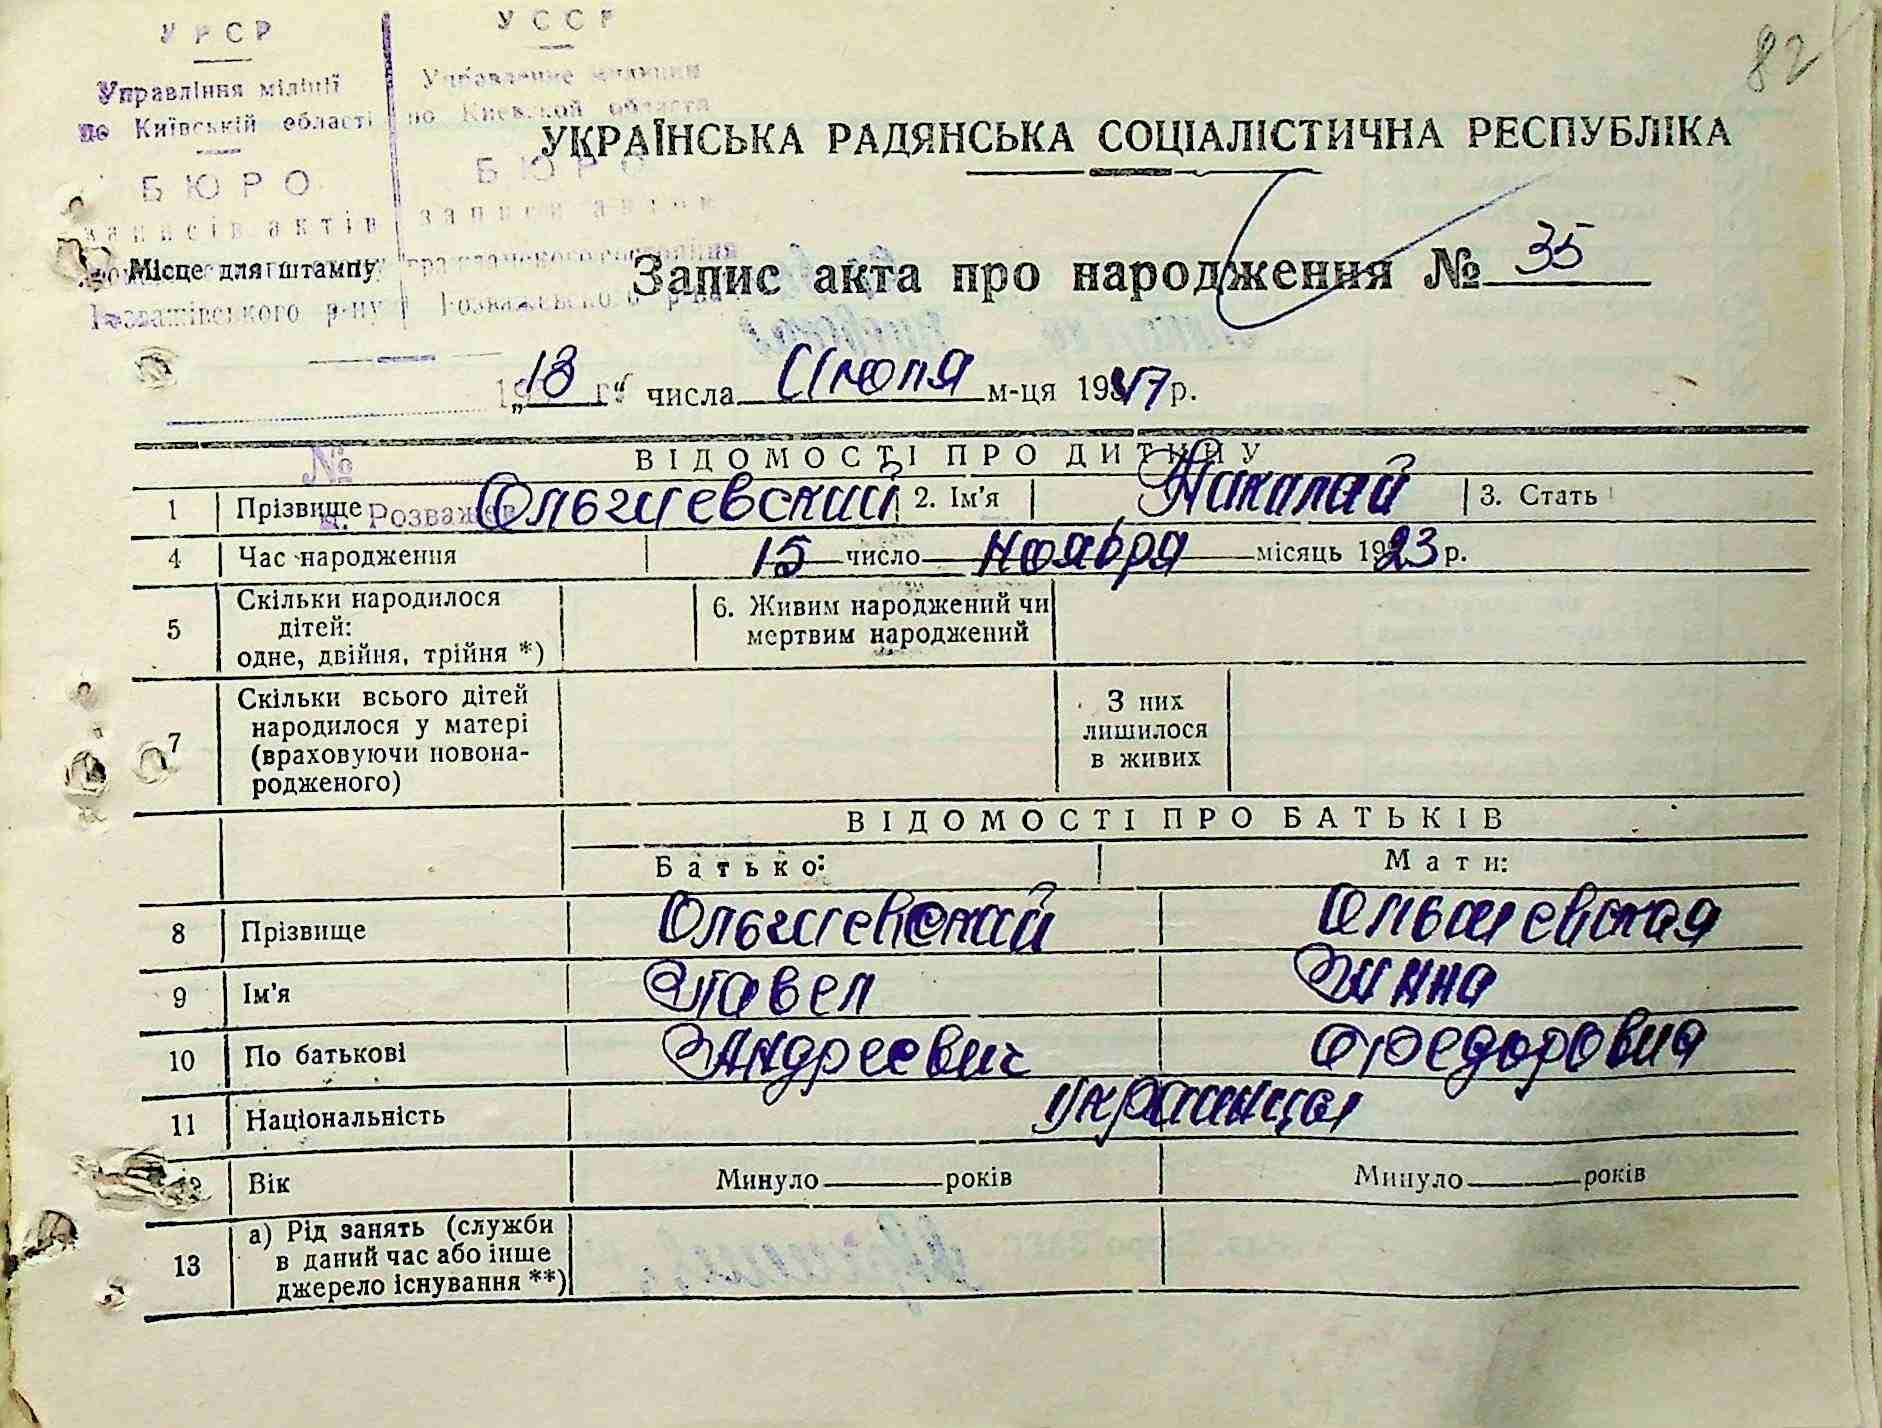 82
УРСР
Управління міліції
по Київській області
БЮРО
записів актів
Розважівського р-ну
УССР
Управление милиции
по Киевской области
БЮРО
записи актов
гражданского состояния
Розважевского р-на
УКРАЇНСЬКА РАДЯНСЬКА СОЦІАЛІСТИЧНА РЕСПУБЛІКА
Місце для штампу
Запис акта про народження № 35
„18“ числа Июля м-ця 1947 р.
№
ВІДОМОСТІ ПРО ДИТИНУ
1 Прізвище Ольшевский 2. Ім'я Николай 3. Стать
4 Час народження 15 число Ноября місяць 1923 р.
5 Скільки народилося дітей: одне, двійня, трійня *) 6. Живим народжений чи мертвим народжений
7 Скільки всього дітей народилося у матері (враховуючи новонародженого) З них лишилося в живих
ВІДОМОСТІ ПРО БАТЬКІВ
Батько: Мати:
8 Прізвище Ольшевский Ольшевская
9 Ім'я Павел
10 По батькові Андреевич Федоровна
11 Національність Украинцы
12 Вік Минуло років Минуло років
13 а) Рід занять (служби в даний час або інше джерело існування **)